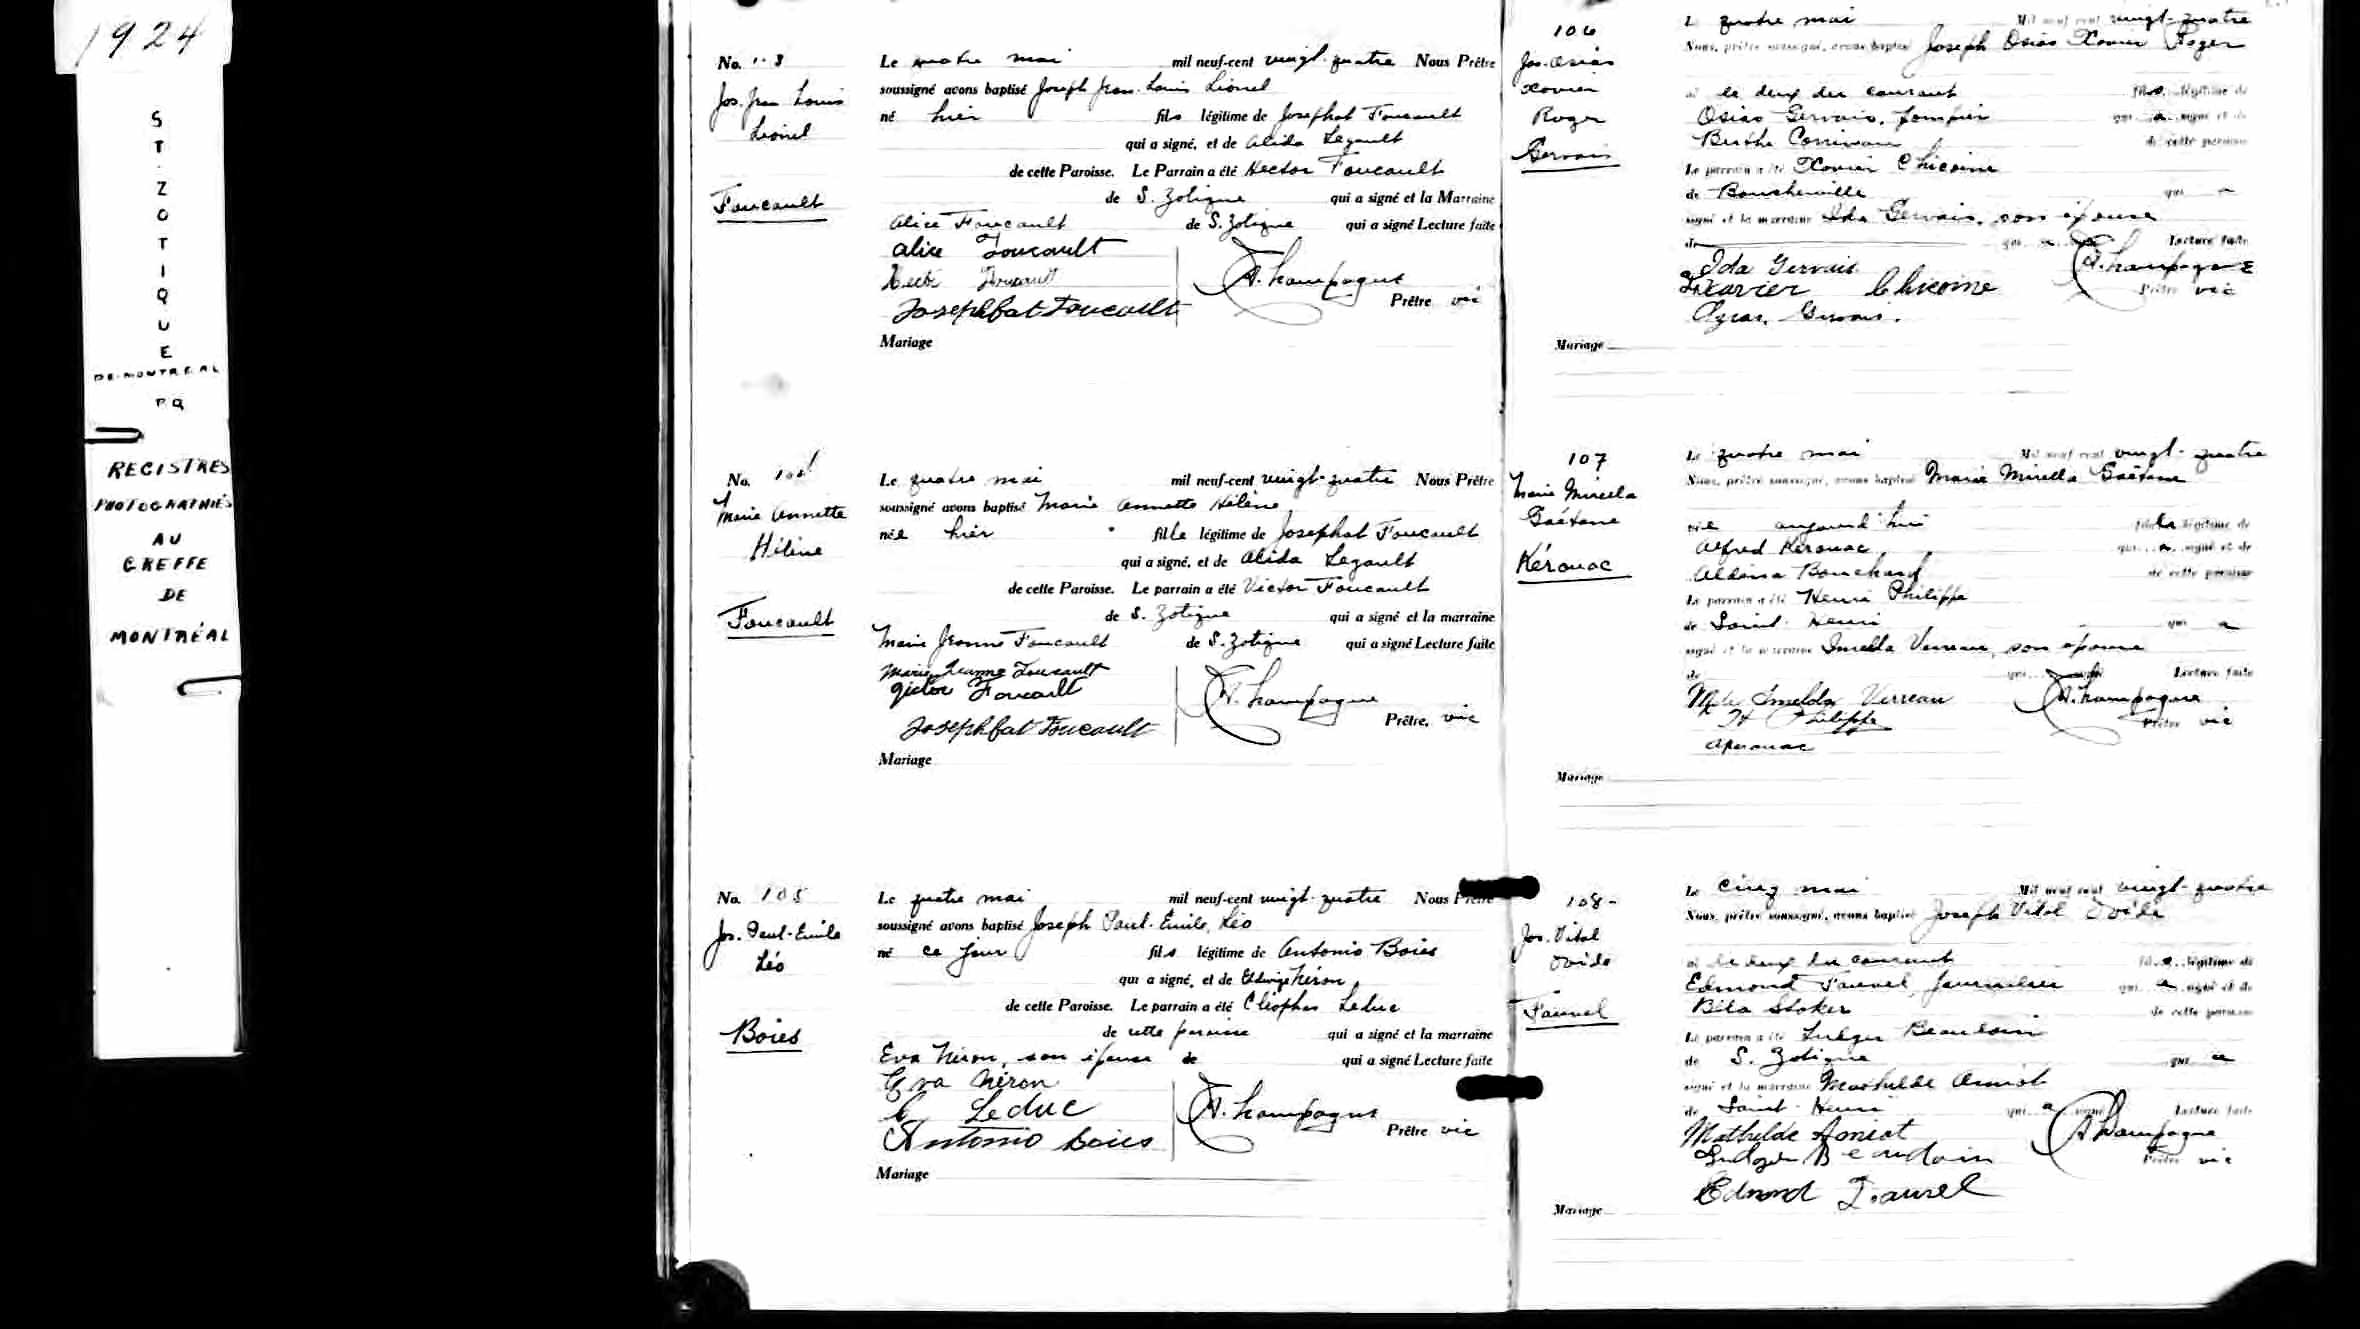 1924
ST. ZOTIQUE
DE-MONTREAL
PQ
REGISTRES
PHOTOGRAPHIÉS
AU
GREFFE
DE
MONTRÉAL
No.
Jos. Jean Louis
Lionel
Foucault
Le quatre mai mil neuf-cent vingt-quatre Nous Prêtre
soussigné avons baptisé Joseph Jean-Louis Lionel
né hier fils légitime de Josephat Foucault
qui a signé, et de Alida Legault
de cette Paroisse. Le Parrain a été Hector Foucault
de S. Zotique qui a signé et la Marraine
Alice Foucault de S. Zotique qui a signé Lecture faite
Alice Foucault
Foucault
Josephfat Foucault
A. Champagne
Prêtre vic
Mariage
No. 104
Marie Annette
Hélène
Foucault
Le quatre mai mil neuf-cent vingt-quatre Nous Prêtre
soussigné avons baptisé Marie Annette Hélène
née hier fille légitime de Josephat Foucault
qui a signé, et de Alida Legault
de cette Paroisse. Le parrain a été Victor Foucault
de S. Zotique qui a signé et la marraine
Marie Jeanne Foucault de S. Zotique qui a signé Lecture faite
Marie Jeanne Foucault
Victor Foucault
Josephfat Foucault
A. Champagne
Prêtre, vic
Mariage
No. 105
Jos. Paul-Emile
Léo
Boies
Le quatre mai mil neuf-cent vingt-quatre Nous Prêtre
soussigné avons baptisé Joseph Paul-Emile, Léo
né ce jour fils légitime de Antonio Boies
qui a signé, et de Edwige Néron
de cette Paroisse. Le parrain a été Cléophas Leduc
de cette paroisse qui a signé et la marraine
Eva Néron, son épouse de qui a signé Lecture faite
Eva Néron
C Leduc
Antonio Boies
A. Champagne
Prêtre vic
Mariage
106
Jos. Osias
Xavier
Roger
Gervais
Le quatre mai Mil neuf cent vingt-quatre
Nous, prêtre soussigné, avons baptisé Joseph Osias Xavier Roger
né le deux du courant fils légitime de
Osias Gervais, pompier qui a signé et de
Berthe Corriveau de cette paroisse
Le parrain a été Xavier Chicoine
de Boucherville qui a
signé et la marraine Ida Gervais, son épouse
de qui a Lecture faite
Ida Gervais
Xavier Chicoine
Gervais.
A. Champagne
Prêtre vic
Mariage
107
Marie Mirella
Gaétane
Kérouac
Le quatre mai Mil neuf cent vingt-quatre
Nous, prêtre soussigné, avons baptisé Marie Mirella Gaétane
née aujourd'hui fille légitime de
Alfred Kérouac, qui a signé et de
Aldina Bouchard de cette paroisse
Le parrain a été Henri Philippe
de Saint-Henri qui a
signé et la marraine Imelda Verreau, son épouse
de Lecture faite
Mde Imelda Verreau
H Philippe
A Kerouac
A. Champagne
Prêtre vic
Mariage
108-
Jos. Vital
Ovide
Fauvel
Le cinq mai Mil neuf cent vingt-quatre
Nous, prêtre soussigné, avons baptisé Joseph Vital Ovide
né le deux du courant fils légitime de
Edmond Fauvel, journalier qui a signé et de
Béla Stoker de cette paroisse
Le parrain a été Ludger Beaudoin
de S. Zotique qui a
signé et la marraine Mathilde Amiot
de Saint-Henri qui a signé Lecture faite
Mathilde Amiot
Ludger Beaudoin
Edmond Fauvel
A Champagne
Prêtre vic
Mariage